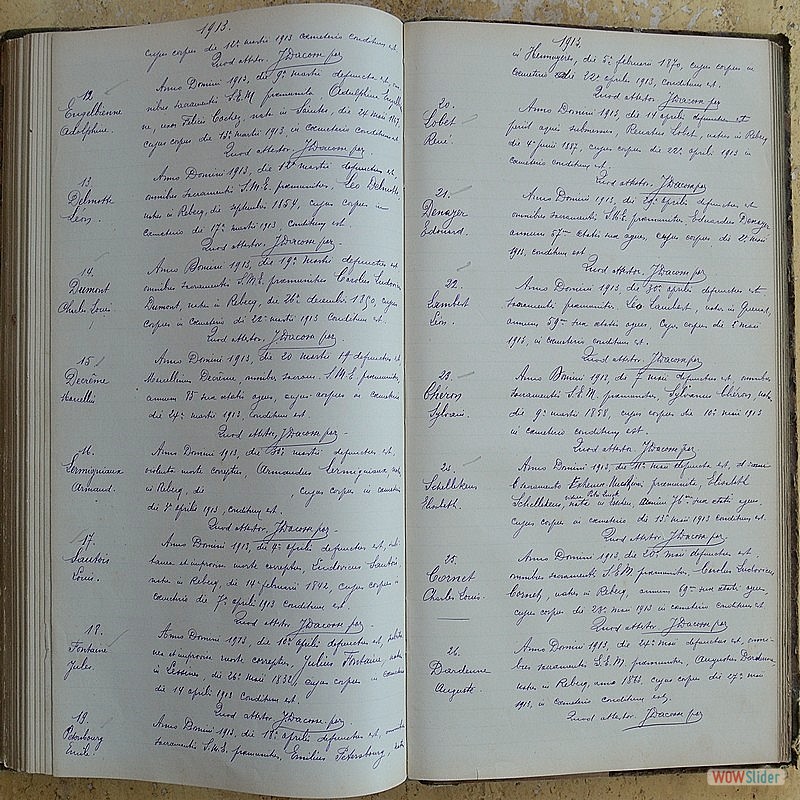 1913.
cujus corpus die 12a martii 1913 cœmeterio conditum est
Quod attestor. J Dacosse per
12
Engelbienne
Adolphine.
Anno Domini 1913, die 9a martii defuncta est om-
nibus sacramentis S.E.M. præmunita Adolphina Engelbien-
ne, uxor Felicis Cochez, nata in Saintes, die 24 maii
cujus corpus die 13a martii 1913 in cœmeterio conditum est
Quod attestor. J Dacosse per
13
Delmotte
Léon.
Anno Domini 1913, die 12a martii defunctus est,
omnibus sacramentis S.M.E. præmunitus, Leo Delmotte,
natus in Rebecq, die septembris 1854, cujus corpus in
cœmeterio die 17a martii 1913, conditum est.
Quod attestor. J Dacosse per
14
Dumont
Charles Louis.
Anno Domini 1913, die 19a martii defunctus est
omnibus sacramentis S.M.E. præmunitus Carolus Ludovicus
Dumont, natus in Rebecq, die 26a decembris 1850, cujus
corpus in cœmeterio die 22a martii 1913 conditum est.
Quod attestor. J Dacosse per
15
Decrême
Marcellin
Anno Domini 1913, die 20 martii 19 defunctus est
Marcellinus Decrême, omnibus sacram. S.M.E. præmunitus,
annum 75 suæ ætatis agens, cujus corpus in cœmeterio
die 24a martii 1913, conditum est.
Quod attestor, J Dacosse per
16
Lermigniaux
Armand.
Anno Domini 1913, die martii defunctus est,
violenta morte correptus, Armandus Lermigniaux, natus
in Rebecq, die cujus corpus in cœmeterio
die aprilis 1913, conditum est.
Quod attestor. J Dacosse per
17.
Sautois
Louis.
Anno Domini 1913, die 4a aprilis defunctus est, subi-
tanea et improvisa morte correptus, Ludovicus Sautois
natus in Rebecq, die 14a februarii 1842, cujus corpus in
cœmeterio die 7a aprilis 1913 conditum est.
Quod attestor. J Dacosse per
18.
Fontaine
Jules.
Anno Domini 1913, die 10a aprilis defunctus est,
et improvisa morte correptus, Julius Fontaine, natus
in Lessine, die 26a maii 1832, cujus corpus in cœmeterio
die 14 aprilis 1913 conditum est.
Quod attestor J Dacosse per
19.
Petersbourg
Emile.
Anno Domini 1913, die 18a aprilis defunctus est, omnibus
sacramentis S.M.E. præmunitus, Emilius Petersbourg, natus
1913.
in Hennuyeres, die 5a februarii 1870, cujus corpus in
cœmeterio die 22a aprilis 1913, conditum est.
Quod attestor J Dacosse per
20.
Lobet
René.
Anno Domini 1913, die 14 aprilis defunctus est
periit aquis submersus, Renatus Lobet, natus in Rebecq
die 4a junii 1887, cujus corpus die 22a aprilis 1913 in
cœmeterio conditum est.
Quod attestor. J Dacosse per
21.
Denayer
Edouard.
Anno Domini 1913, die 29a aprilis defunctus est
omnibus sacramentis S.M.E. præmunitus Eduardus Denayer
annum 57um ætatis suæ agens, cujus corpus die 2a maii
1913, conditum est
Quod attestor J Dacosse per
22.
Lambert
Léon.
Anno Domini 1913, die 30a aprilis defunctus est
sacramentis præmunitus. Leo Lambert, natus in Quenast,
annum 59um suæ ætatis agens, cujus corpus die 5 maii
1913, in cœmeterio conditum est.
Quod attestor J Dacosse per
23.
Chéron
Sylvain.
Anno Domini 1913, die 7 maii defunctus est, omnibus
sacramentis S.E.M. præmunitus, Sylvanus Chéron, natus
die 9a martii 1858, cujus corpus die 10a maii 1913
in cœmeterio conditum est.
Quod attestor, J Dacosse per
24.
Schellekens
Elisabeth.
Anno Domini 1913, die 11a maii defuncta est,
sacramento Extremæ Unctionis præmunita, Elisabeth
Schellekens, nata in annum 76um suæ ætatis agens,
cujus corpus in cœmeterio die 13a maii 1913 conditum est.
Quod attestor J Dacosse per
25.
Cornet
Charles Louis.
Anno Domini 1913, die 20a maii defunctus est.
omnibus sacramentis S.E.M. præmunitus, Carolus Ludovicus
Cornet, natus in Rebecq, annum 69um suæ ætatis agens,
cujus corpus die 23a maii 1913 in cœmeterio conditum est
Quod attestor J Dacosse per
26.
Dardenne
Auguste.
Anno Domini 1913, die 24a maii defunctus est, omni-
bus sacramentis S.E.M. præmunitus, Augustus Dardenne
natus in Rebecq, anno 1843, cujus corpus die 27a maii
1913, in cœmeterio conditum est.
Quod attestor J Dacosse per
WOWSlider